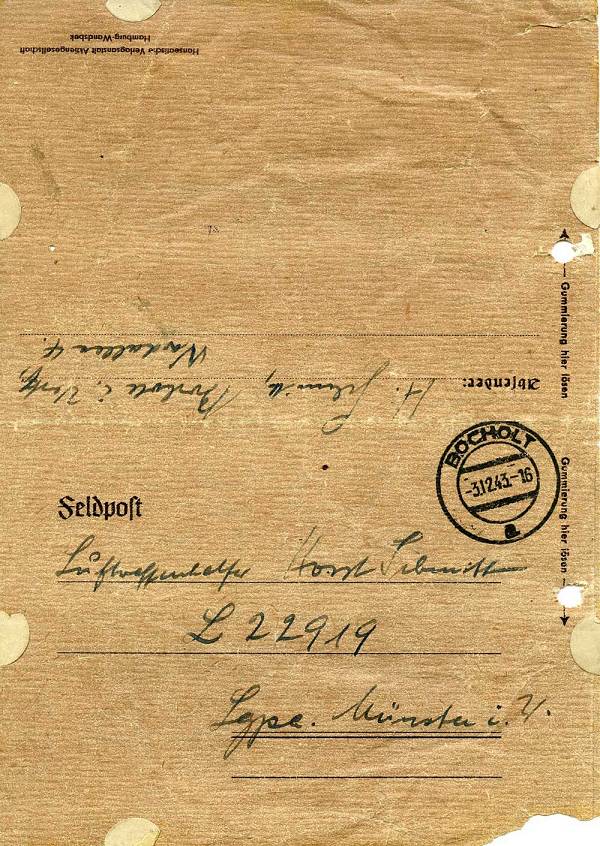 Hanseatische Verlagsanstalt Aktiengesellschaft
Hamburg-Wandsbek
Absender: H. Schmidt, Bocholt i. Westf.
4.
Gummierung hier lösen
Gummierung hier lösen
BOCHOLT
-3.12.43.-16
a
Feldpost
Luftwaffenhelfer Horst Schmidt
L 22919
Lgpa. Münster i. W.